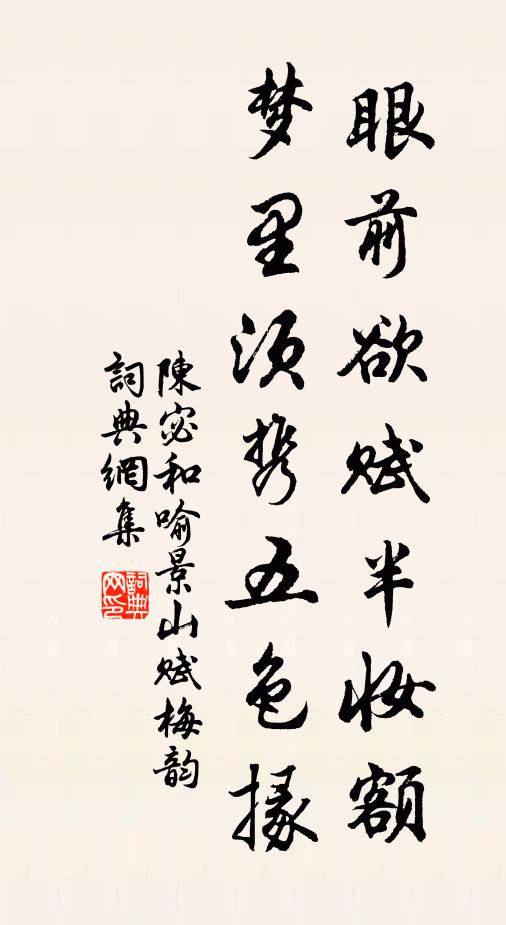 眼前欲赋半妆额
梦里须携五色掾
陳宓和喻景山赋梅韵
詞典網集
詞典網印